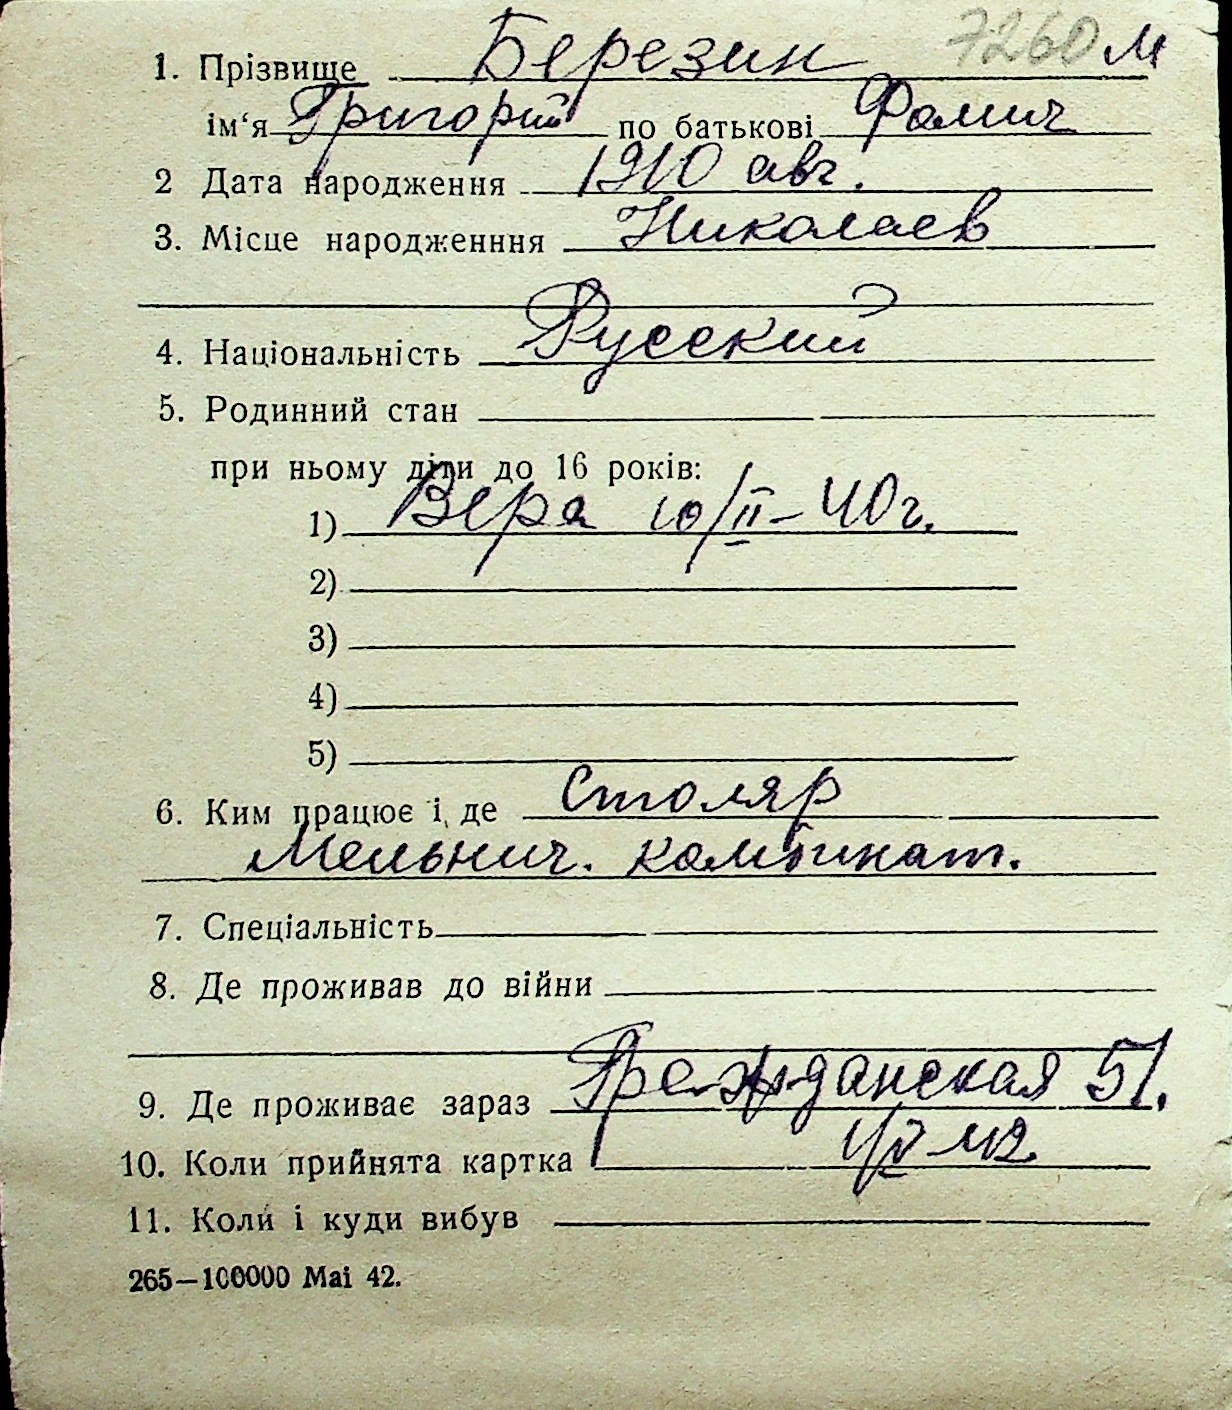 7260 м
1. Прізвище Березин
ім‘я Григорий по батькові Фомич
2 Дата народження 1910 авг.
3. Місце народженння Николаев
4. Національність Русский
5. Родинний стан
при ньому діти до 16 років:
1) Вера 10/II-40г.
2)
3)
4)
5)
6. Ким працює і де Столяр
Мельнич. комбинат.
7. Спеціальність
8. Де проживав до війни
9. Де проживає зараз Гражданская 51.
10. Коли прийнята картка 1/V-42
11. Коли і куди вибув
265—100000 Mai 42.